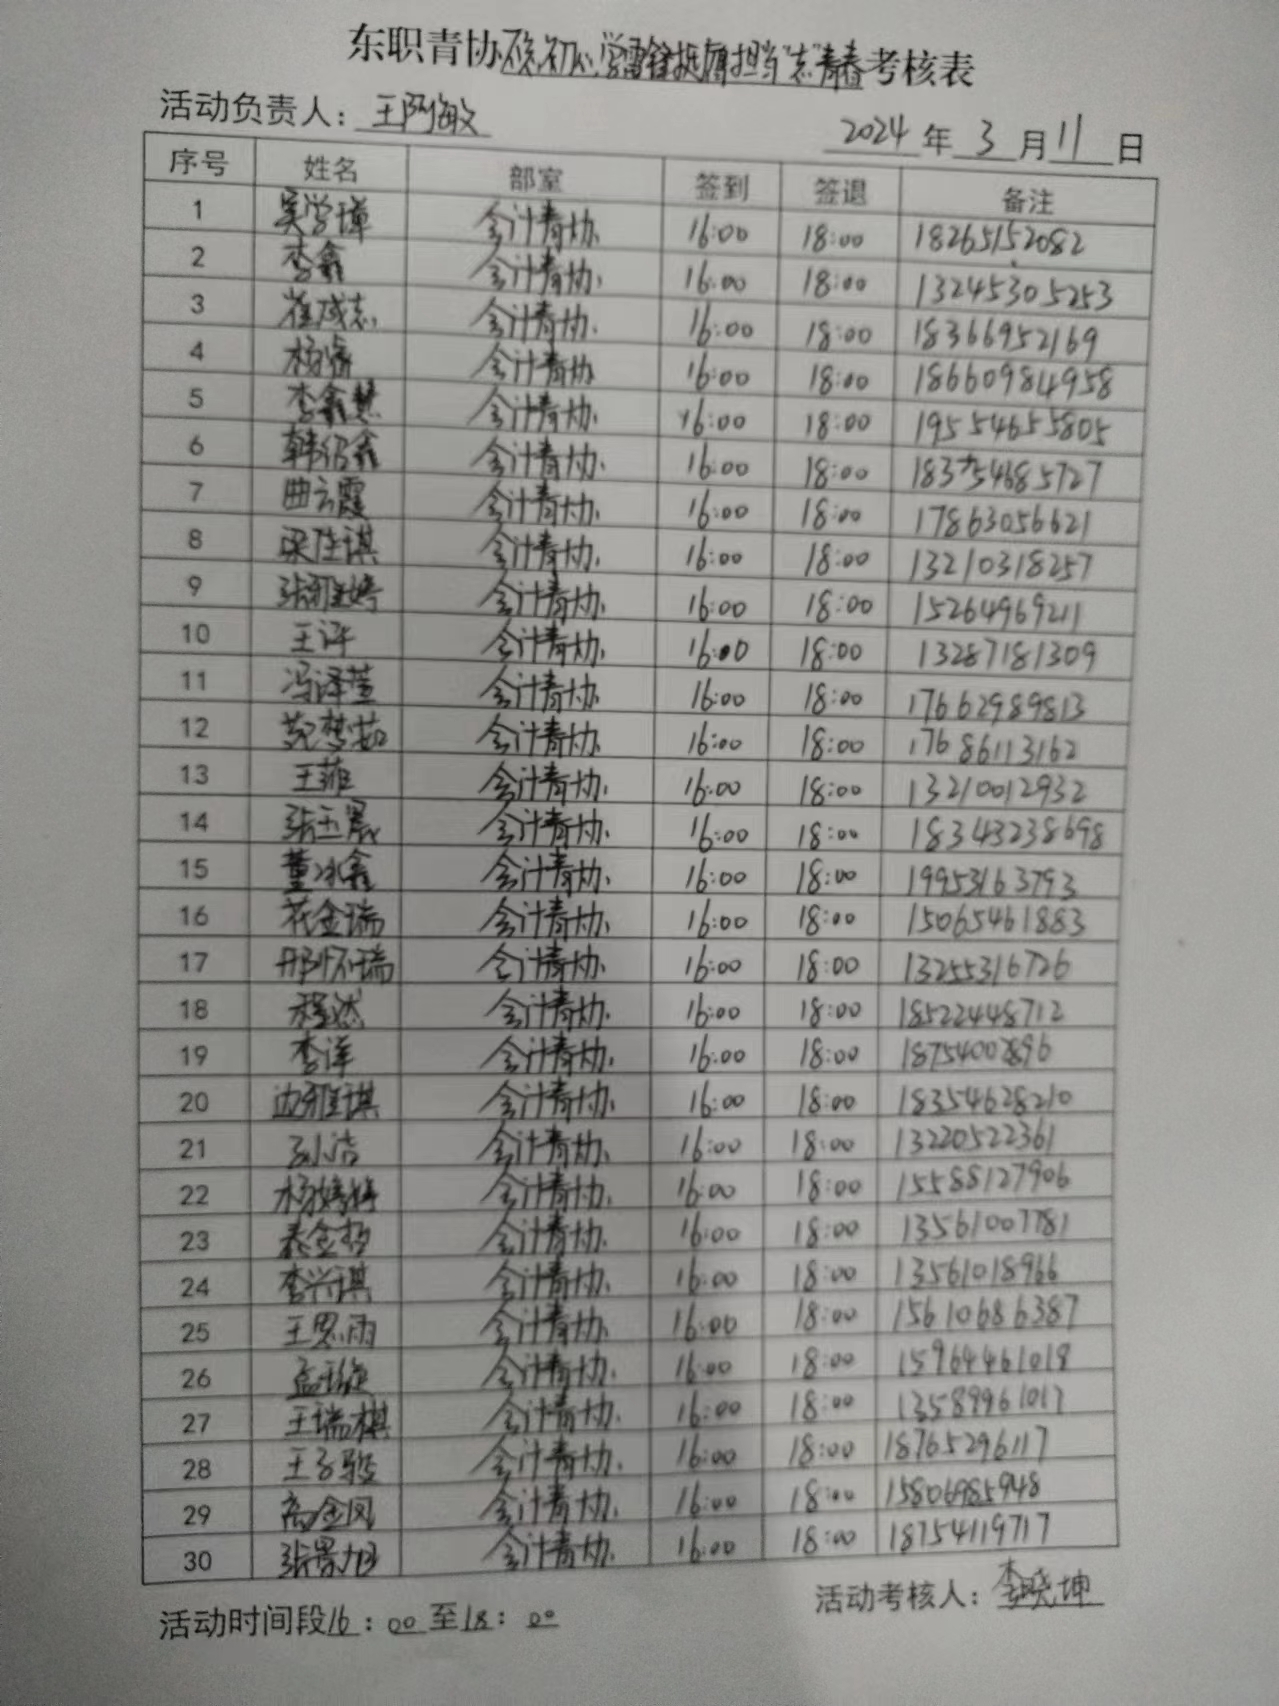 东职青协忘初心,学雷锋挺膺担当"志"青春考核表
活动负责人：王阿敏
2024年3月11日
序号 姓名 部室 签到 签退 备注
1 吴学璋 会计青协 16:00 18:00 18265152082
2 李鑫 会计青协 16:00 18:00 13245305253
3 崔成志 会计青协 16:00 18:00 18366952169
4 杨睿 会计青协 16:00 18:00 18660984958
5 李鑫慧 会计青协 16:00 18:00 19554655805
6 韩绍鑫 会计青协 16:00 18:00 18354685727
7 曲云霞 会计青协 16:00 18:00 17863056621
8 梁佳琪 会计青协 16:00 18:00 13210318257
9 张雅婷 会计青协 16:00 18:00 15264969211
10 王评 会计青协 16:00 18:00 13287181309
11 冯泽萱 会计青协 16:00 18:00 17662989813
12 范梦茹 会计青协 16:00 18:00 17686113162
13 王菲 会计青协 16:00 18:00 13210012932
14 张玉晨 会计青协 16:00 18:00 18343238698
15 董冰鑫 会计青协 16:00 18:00 19953163793
16 花金瑞 会计青协 16:00 18:00 15065461883
17 邢怀瑞 会计青协 16:00 18:00 13255316726
18 程然 会计青协 16:00 18:00 18522448712
19 李洋 会计青协 16:00 18:00 18754002896
20 边雅琪 会计青协 16:00 18:00 18354628210
21 孙洁 会计青协 16:00 18:00 13220522361
22 杨婷婷 会计青协 16:00 18:00 15588127906
23 秦金哲 会计青协 16:00 18:00 13561007781
24 李兴琪 会计青协 16:00 18:00 13561018966
25 王思雨 会计青协 16:00 18:00 15610686387
26 孟璇 会计青协 16:00 18:00 15964461019
27 王瑞棋 会计青协 16:00 18:00 13589961017
28 王子骏 会计青协 16:00 18:00 18765296117
29 高金凤 会计青协 16:00 18:00 15806985948
30 张景旭 会计青协 16:00 18:00 18754119717
活动时间段16：00至18：00
活动考核人：李晓坤